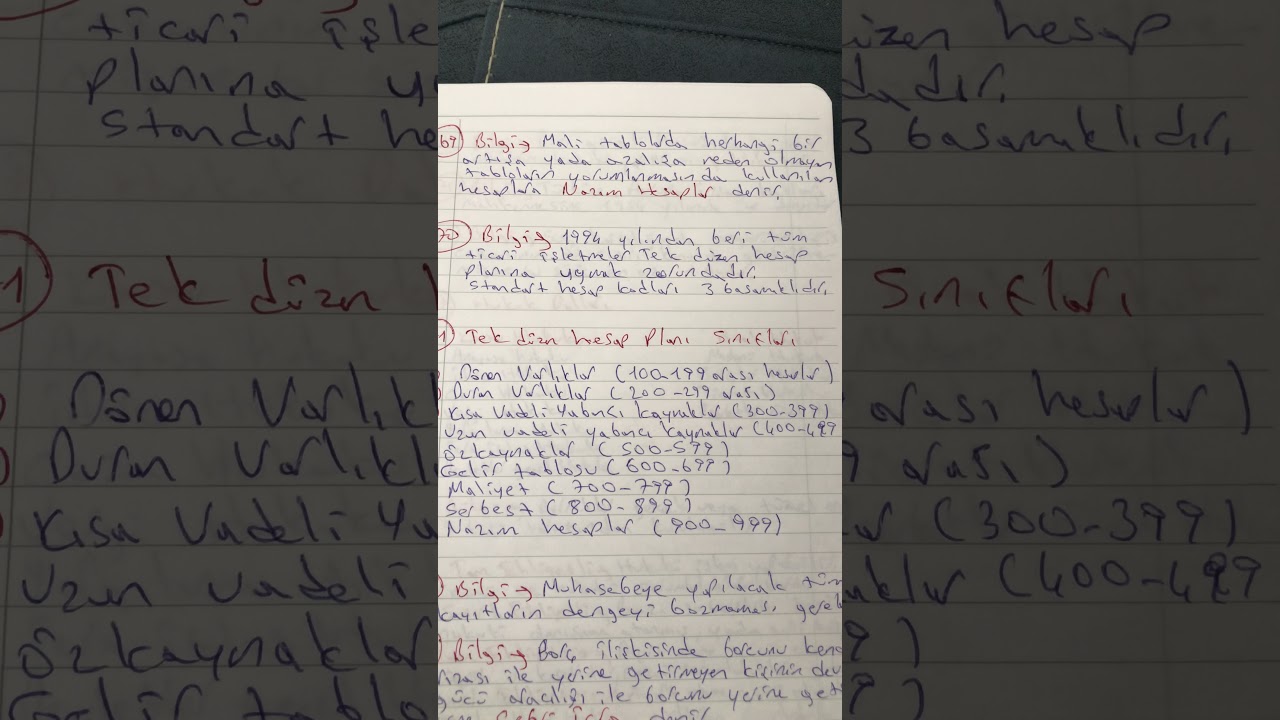 69 Bilgi → Mali tablolarda herhangi bir
artışa yada azalışa neden olmayan
tabloların yorumlanmasında kullanılan
hesaplara Nazım Hesaplar denir.
70 Bilgi → 1994 yılından beri tüm
ticari işletmeler Tek düzen hesap
planına uymak zorundadır.
Standart hesap kodları 3 basamaklıdır.
1 Tek düzn hesap Planı Sınıfları
Dönen Varlıklar (100-199 arası hesaplar)
Duran Varlıklar (200-299 arası)
Kısa Vadeli Yabancı kaynaklar (300-399)
Uzun vadeli yabancı kaynaklar (400-499
Özkaynaklar (500-599)
Gelir tablosu (600-699)
Maliyet (700-799)
Serbest (800-899)
Nazım hesaplar (900-999)
Bilgi → Muhasebeye yapılacak tüm
kayıtların dengeyi bozmaması gerek
Bilgi → Borç ilişkisinde borcunu kend
rızası ile yerine getirmeyen kişinin dev
gücü aracılığı ile borcunu yerine geti
Cebri icra denir